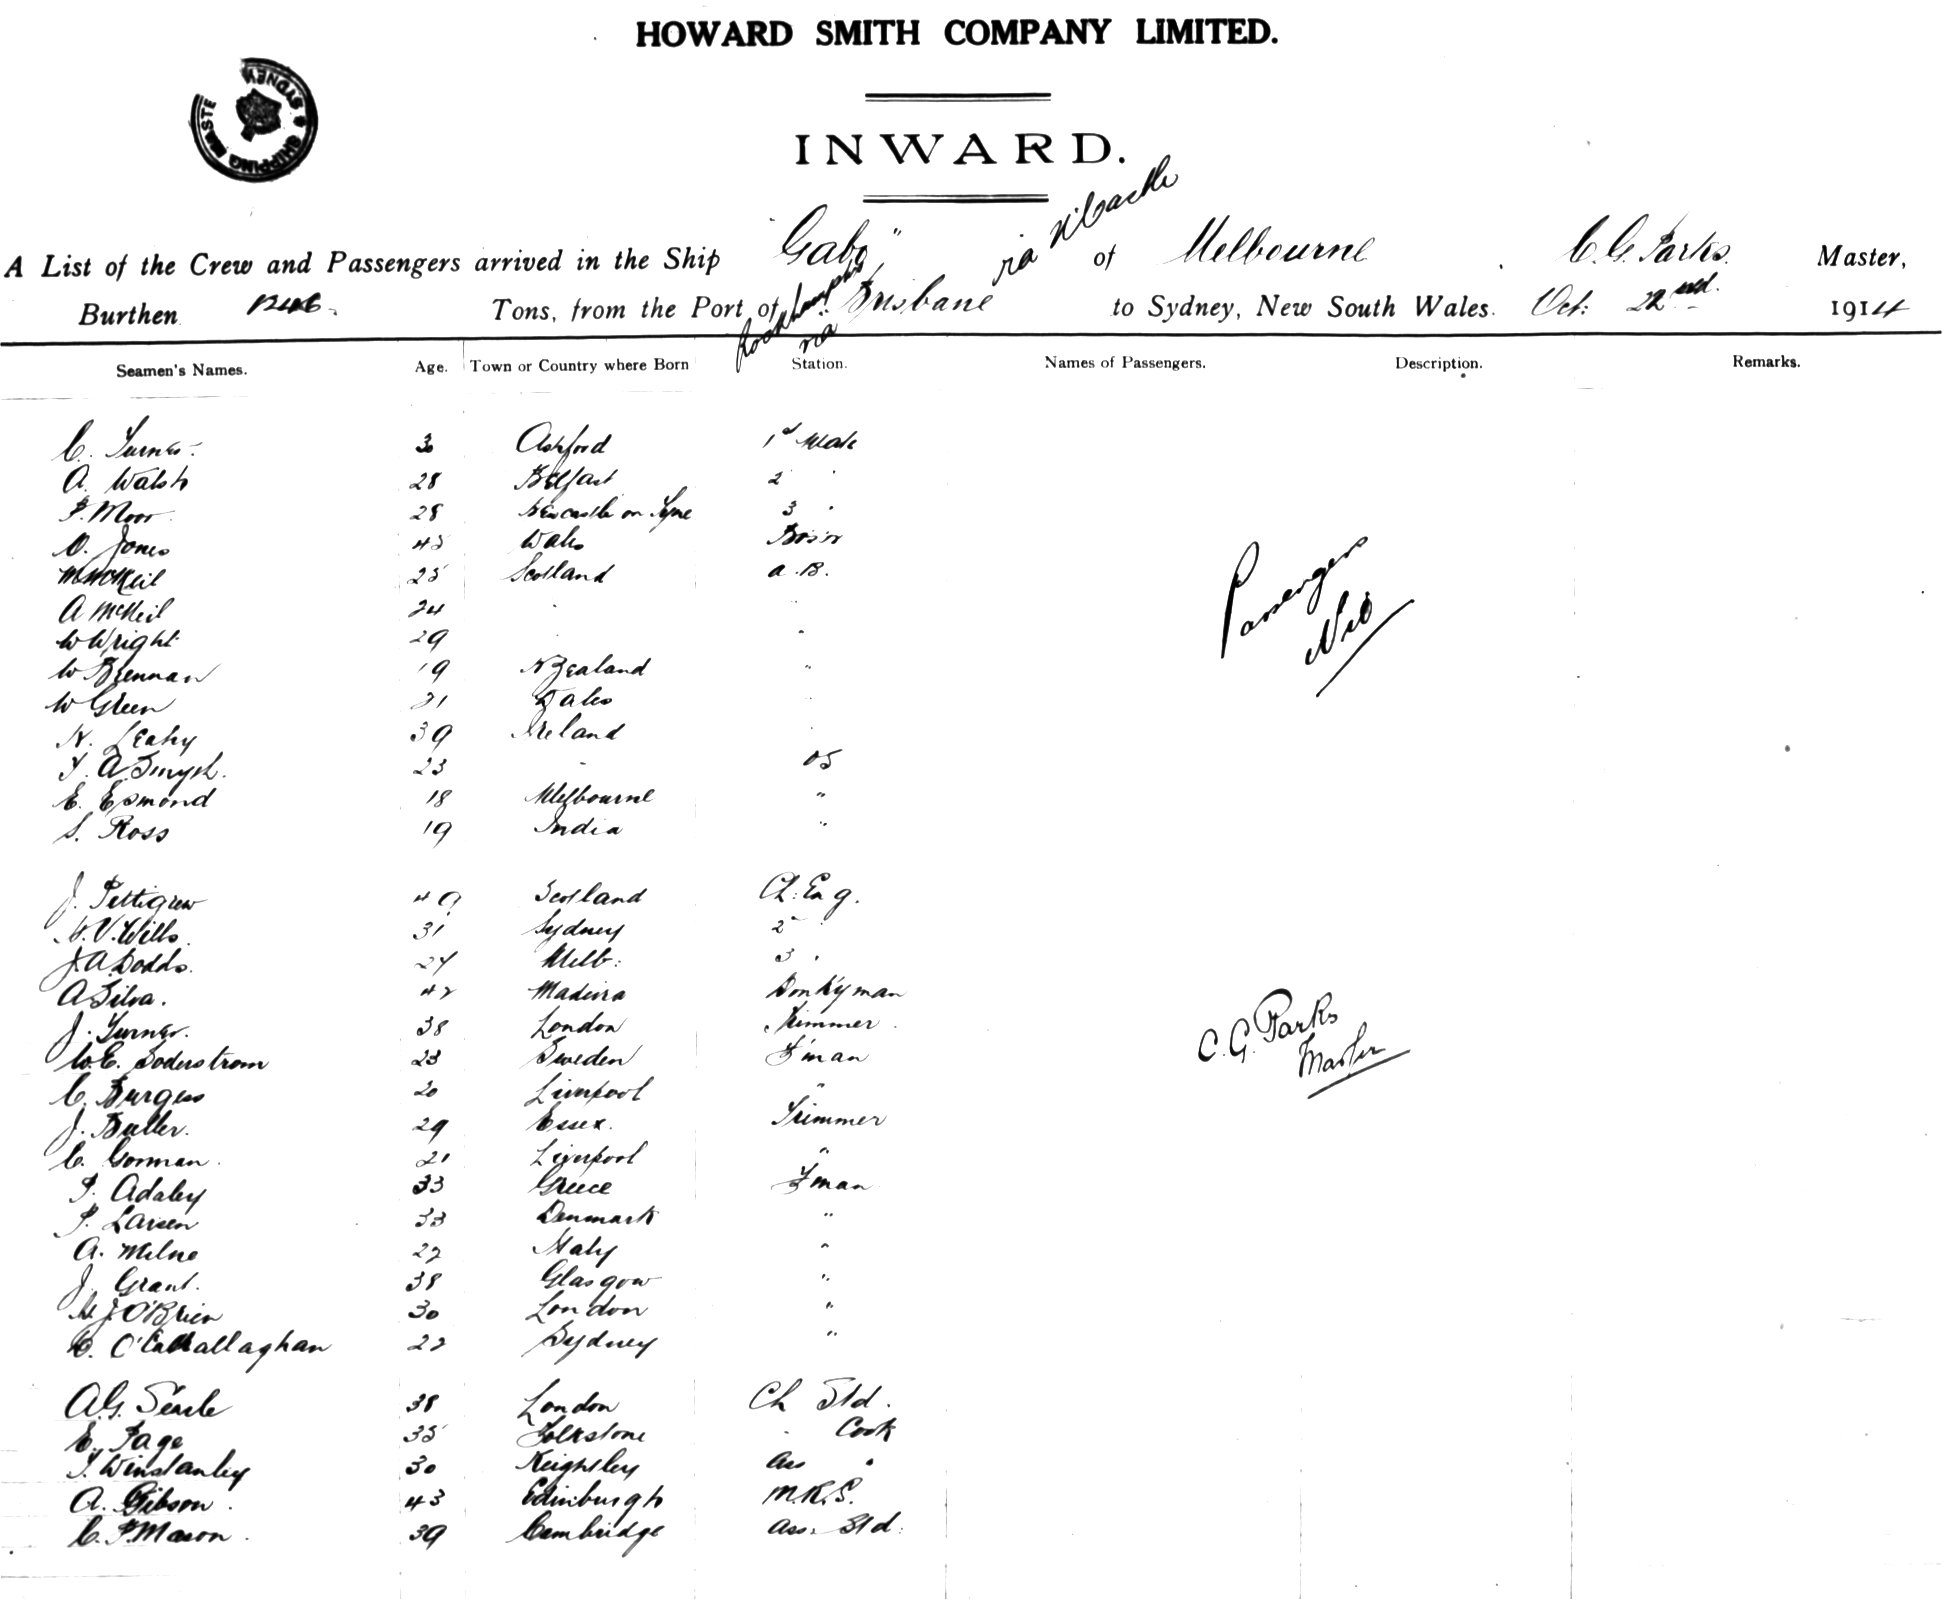 HOWARD SMITH COMPANY LIMITED.
SHIPPING MASTE SYDNEY
INWARD.
A List of the Crew and Passengers arrived in the Ship "Gabo" of Melbourne C. G. Parks. Master,
via N'Castle
Burthen 1246. Tons, from the Port of Rockhampton via Brisbane to Sydney, New South Wales. Oct: 22nd. 1914
Seamen's Names. Age. Town or Country where Born Station. Names of Passengers. Description. Remarks.
C. Turner 30 Ashford 1st Mate
A. Walsh 28 Belfast 2 "
F. Moor 28 Newcastle on Tyne 3 "
O. Jones 45 Wales Bos'n
McNeil 25 Scotland A.B.
A McNeil 24 " "
W Wright 29 " "
W Brennan 19 N Zealand "
W Green 21 Wales "
N. Leahy 39 Ireland "
T. A Smyth. 23 " OS
E. Esmond 18 Melbourne "
S. Ross 19 India "
Passengers
Nil
J. Pettigrew 49 Scotland Ch: Eng.
H. V. Wills. 31 Sydney 2 "
J. A Dodds. 24 Melb: 3 "
A Silva. 42 Madeira Donkyman
J. Turner. 38 London Trimmer.
W. E. Soderstrom 23 Sweden F'man
C. Burgess 20 Liverpool "
J. Butler. 29 Essex. Trimmer
C. Gorman. 21 Liverpool "
P. Adaley 33 Greece F'man
P. Larsen 33 Denmark "
A. Milne 22 Italy "
J. Grant. 38 Glasgow "
H J O'Brien 30 London "
O'Callaghan 22 Sydney "
C. G. Parks
Master
A. G. Searle 38 London Ch Std.
E. Page 35 Folkstone " Cook
T. Winstanley 30 Keighley Ass "
A. Gibson. 43 Edinburgh M.R.S.
C. F. Mason. 39 Cambridge Ass. Std.